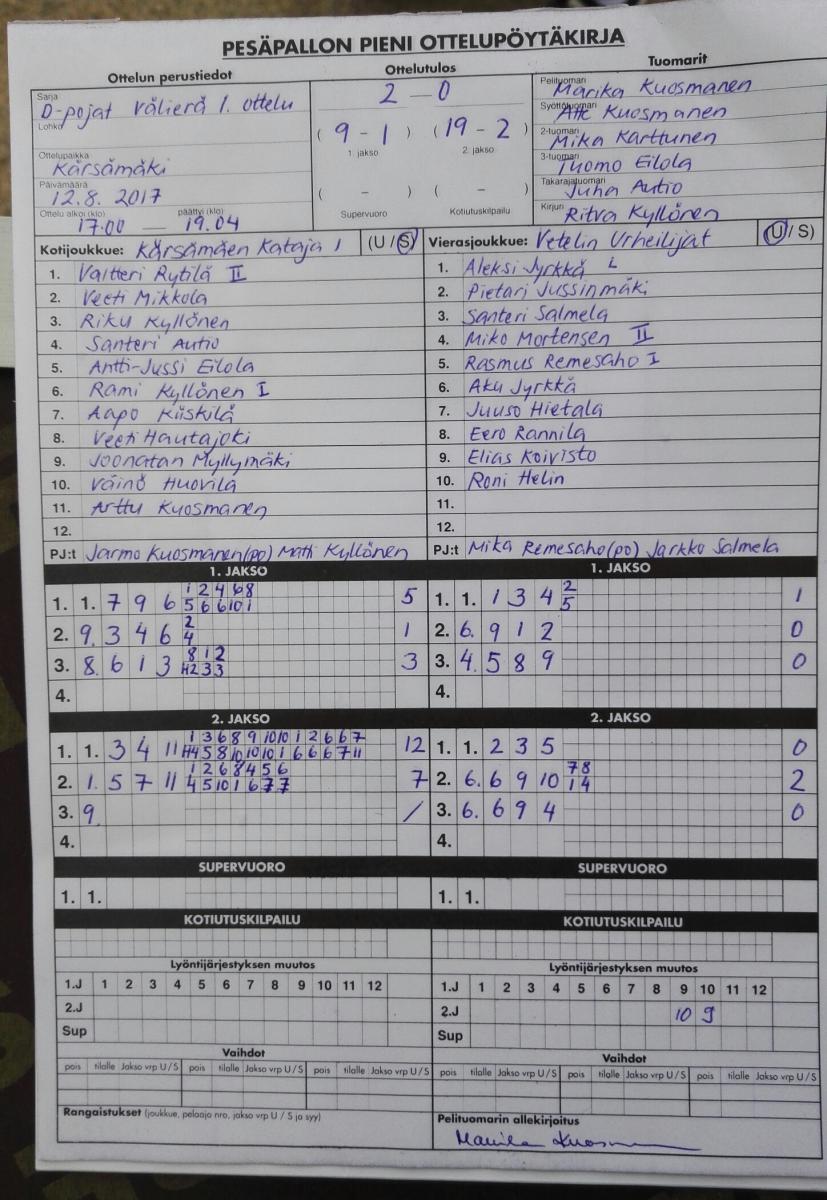 PESÄPALLON PIENI OTTELUPÖYTÄKIRJA
Ottelun perustiedot
Ottelutulos
Tuomarit
Sarja D-pojat välierä 1. ottelu
Lohko
Ottelupaikka Kärsämäki
Päivämäärä 12.8. 2017
Ottelu alkoi (klo) 17.00 — päättyi (klo) 19.04
2 – 0
( 9 - 1 ) ( 19 - 2 )
1. jakso 2. jakso
( – ) ( – )
Supervuoro Kotiutuskilpailu
Pelituomari Marika Kuosmanen
Syöttötuomari Atte Kuosmanen
2-tuomari Mika Karttunen
3-tuomari Tuomo Eilola
Takarajatuomari Juha Autio
Kirjuri Ritva Kyllönen
Kotijoukkue: Kärsämäen Kataja 1 (U / S)
1. Valtteri Rytilä II
2. Veeti Mikkola
3. Riku Kyllönen
4. Santeri Autio
5. Antti-Jussi Eilola
6. Rami Kyllönen I
7. Aapo Kiiskilä
8. Veeti Hautajoki
9. Joonatan Myllymäki
10. Väinö Huovila
11. Arttu Kuosmanen
12.
PJ:t Jarmo Kuosmanen(po) Matti Kyllönen
Vierasjoukkue: Vetelin Urheilijat (U / S)
1. Aleksi Jyrkkä L
2. Pietari Jussinmäki
3. Santeri Salmela
4. Miko Mortensen II
5. Rasmus Remesaho I
6. Aku Jyrkkä
7. Juuso Hietala
8. Eero Rannila
9. Elias Koivisto
10. Roni Helin
11.
12.
PJ:t Mika Remesaho(po) Jarkko Salmela
1. JAKSO
1 2 4 6 8
1. 1. 7 9 6 5 6 6 10 1 5
2
2. 9. 3 4 6 4 1
8 1 2
3. 8. 6 1 3 H2 3 3 3
4.
1. JAKSO
2
1. 1. 1 3 4 5 1
2. 6. 9 1 2 0
3. 4. 5 8 9 0
4.
2. JAKSO
1 3 6 8 9 10 10 1 2 6 6 7
1. 1. 3 4 11 H4 5 8 10 10 10 1 6 6 6 7 11 12
1 2 6 8 4 5 6
2. 1. 5 7 11 4 5 10 1 6 7 7 7
3. 9. /
4.
2. JAKSO
1. 1. 2 3 5 0
7 8
2. 6. 6 9 10 1 4 2
3. 6. 6 9 4 0
4.
SUPERVUORO
1. 1.
SUPERVUORO
1. 1.
KOTIUTUSKILPAILU
KOTIUTUSKILPAILU
Lyöntijärjestyksen muutos
1.J 1 2 3 4 5 6 7 8 9 10 11 12
2.J
Sup
Lyöntijärjestyksen muutos
1.J 1 2 3 4 5 6 7 8 9 10 11 12
2.J 10 9
Sup
Vaihdot
pois tilalle Jakso vrp U / S pois tilalle Jakso vrp U / S pois tilalle Jakso vrp U / S
Vaihdot
pois tilalle Jakso vrp U / S pois tilalle Jakso vrp U / S pois tilalle Jakso vrp U / S
Rangaistukset (joukkue, pelaaja nro, jakso vrp U / S ja syy)
Pelituomarin allekirjoitus
Marika Kuosmanen